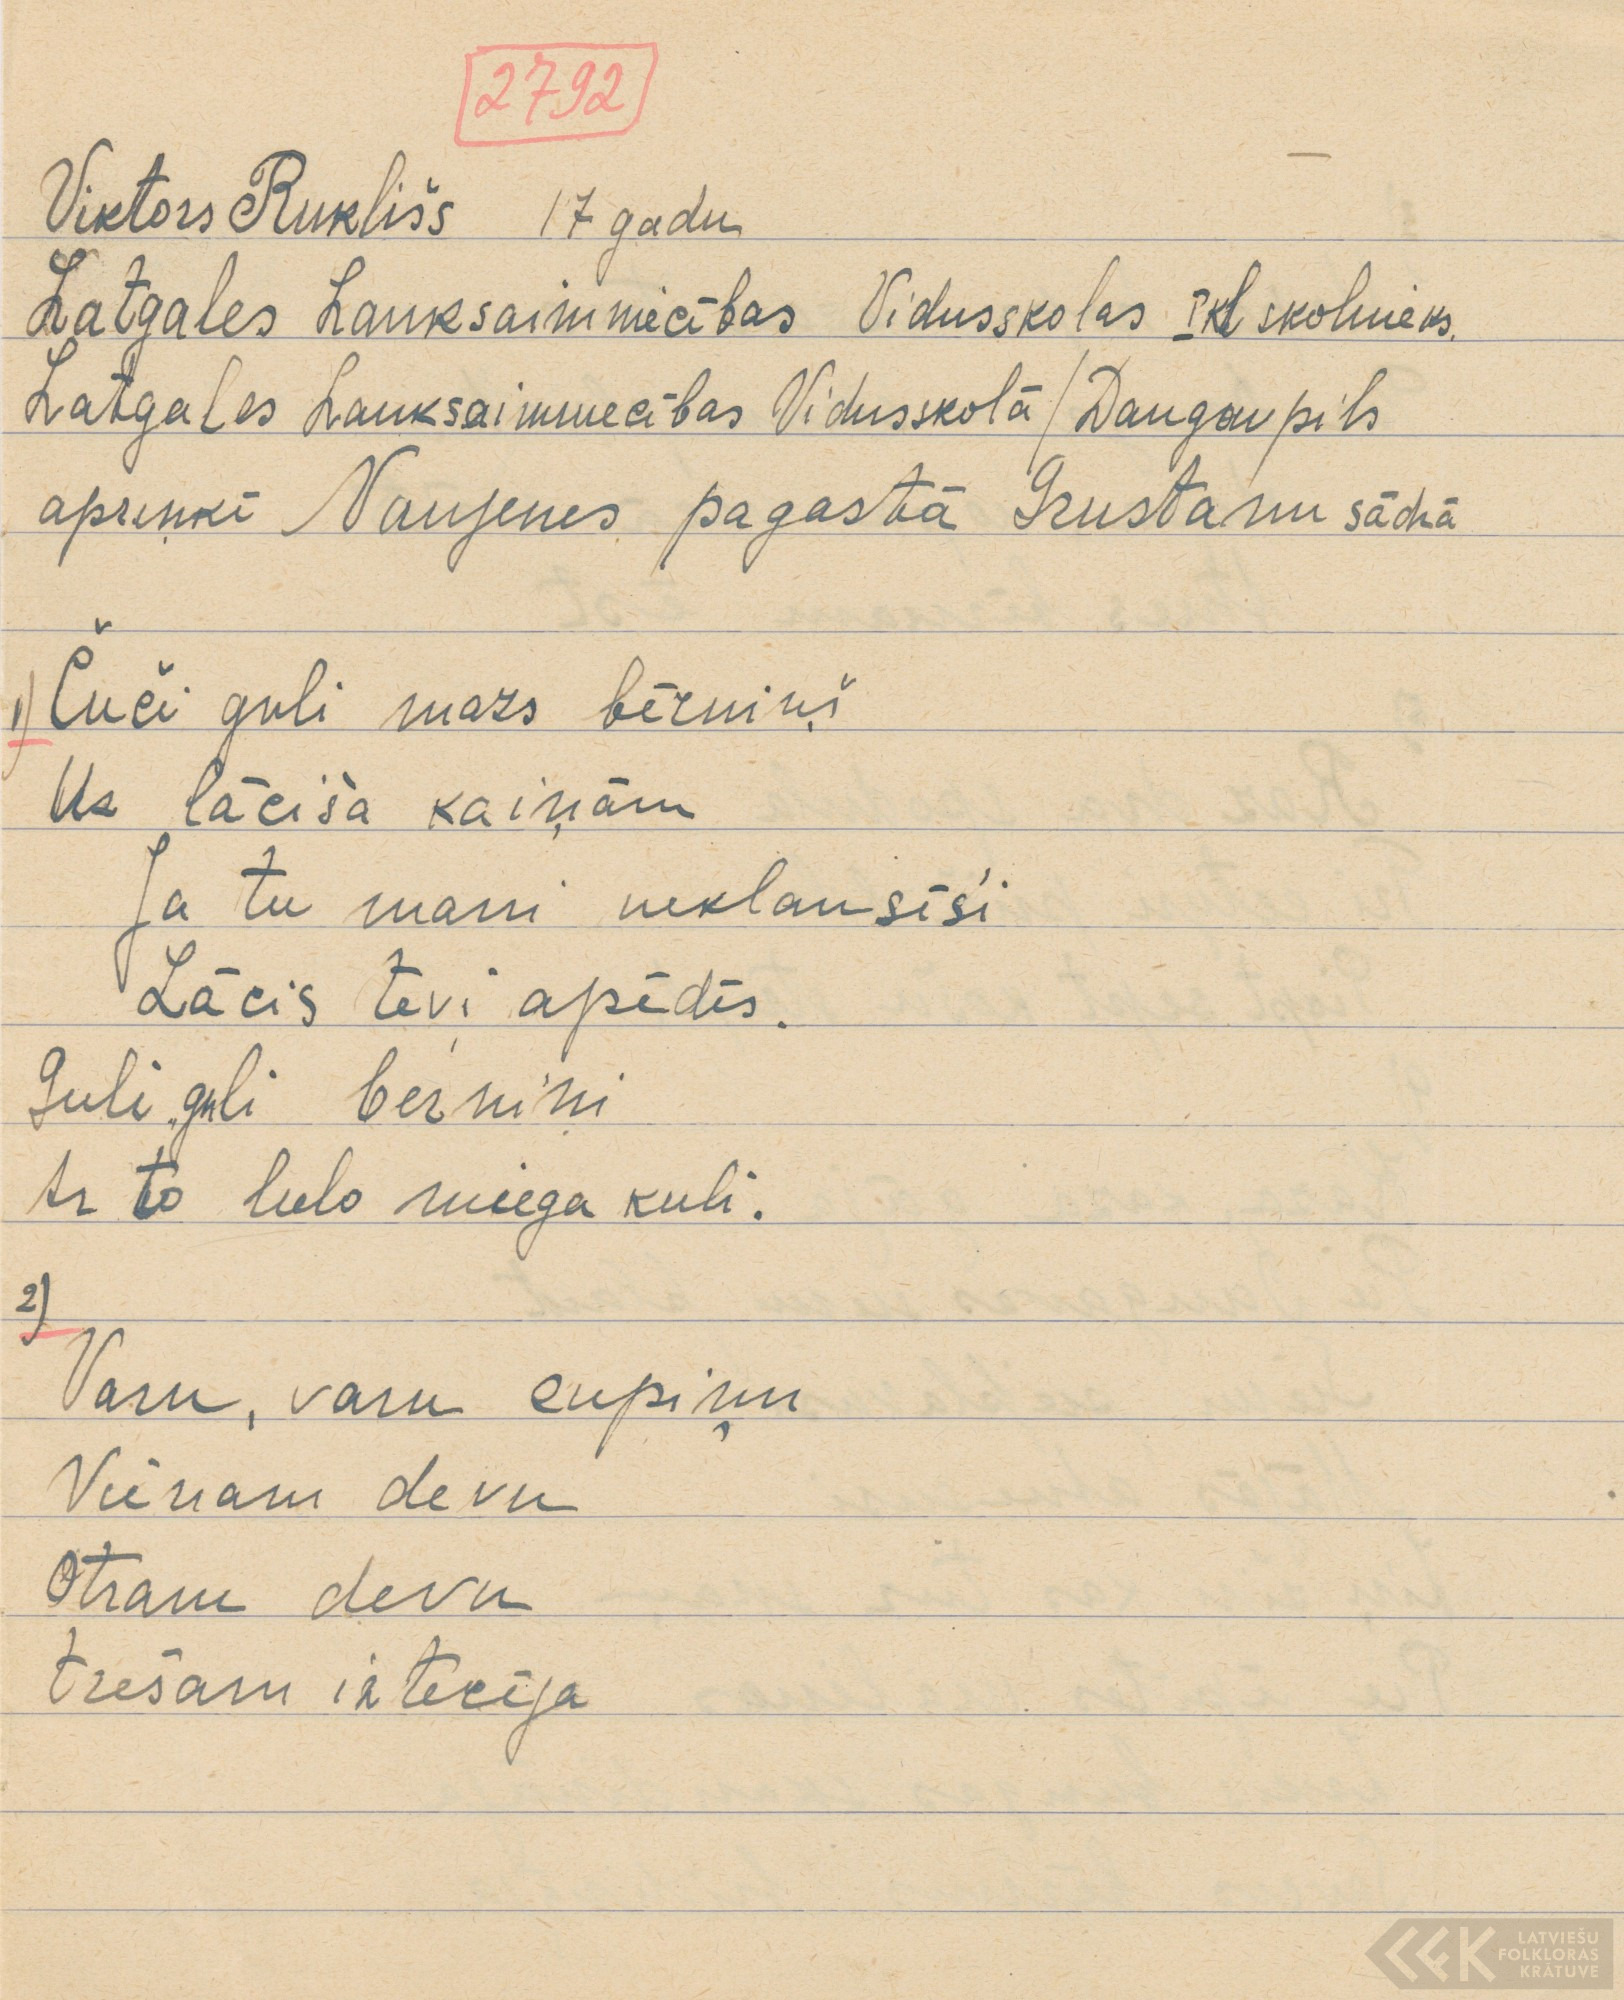 2792
Viktors Ruklišs 17 gadu
Latgales Lauksaimniecības Vidusskolas I kl skolnieks.
Latgales Lauksaimnecības Vidusskolā / Daugavpils
apriņķī Naujenes pagastā Grustanu sādžā
1) Čuči guli mazs bērniņš
Uz lāciša kaiņām
Ja tu mani neklausīsi
Lācis tevi apēdīs.
Guli, guli berniņi
Ar to lielo miega kuli.
2)
Varu, varu cupiņu
Vienam devu
Otram devu
trešam iztecēja
LATVIEŠU
FOLKLORAS
KRĀTUVE